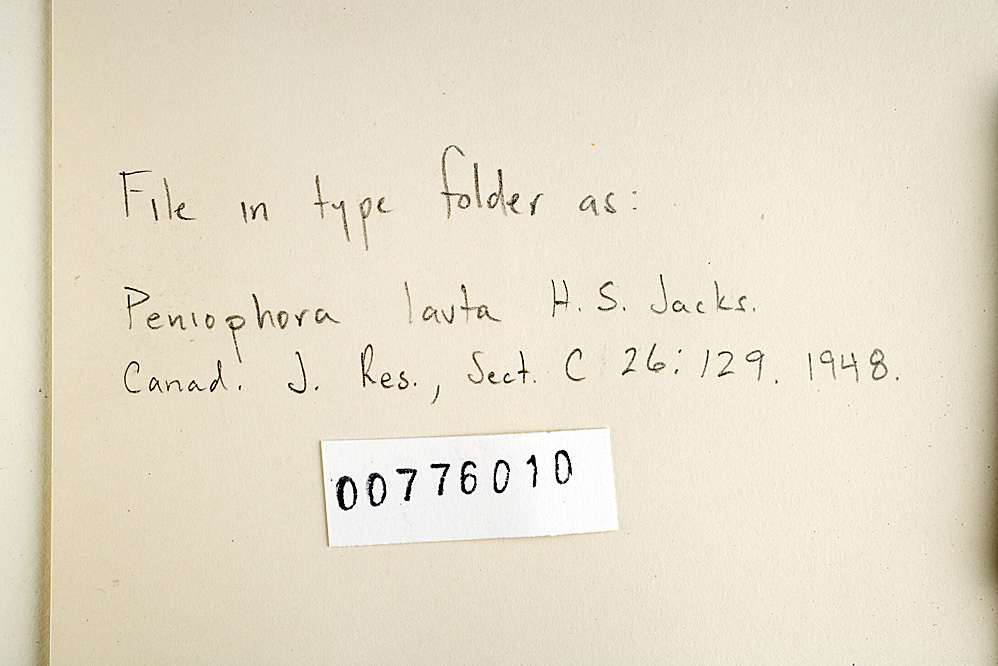 File in type folder as:
Peniophora lauta H.S. Jacks.
Canad. J. Res., Sect. C 26: 129. 1948.
00776010